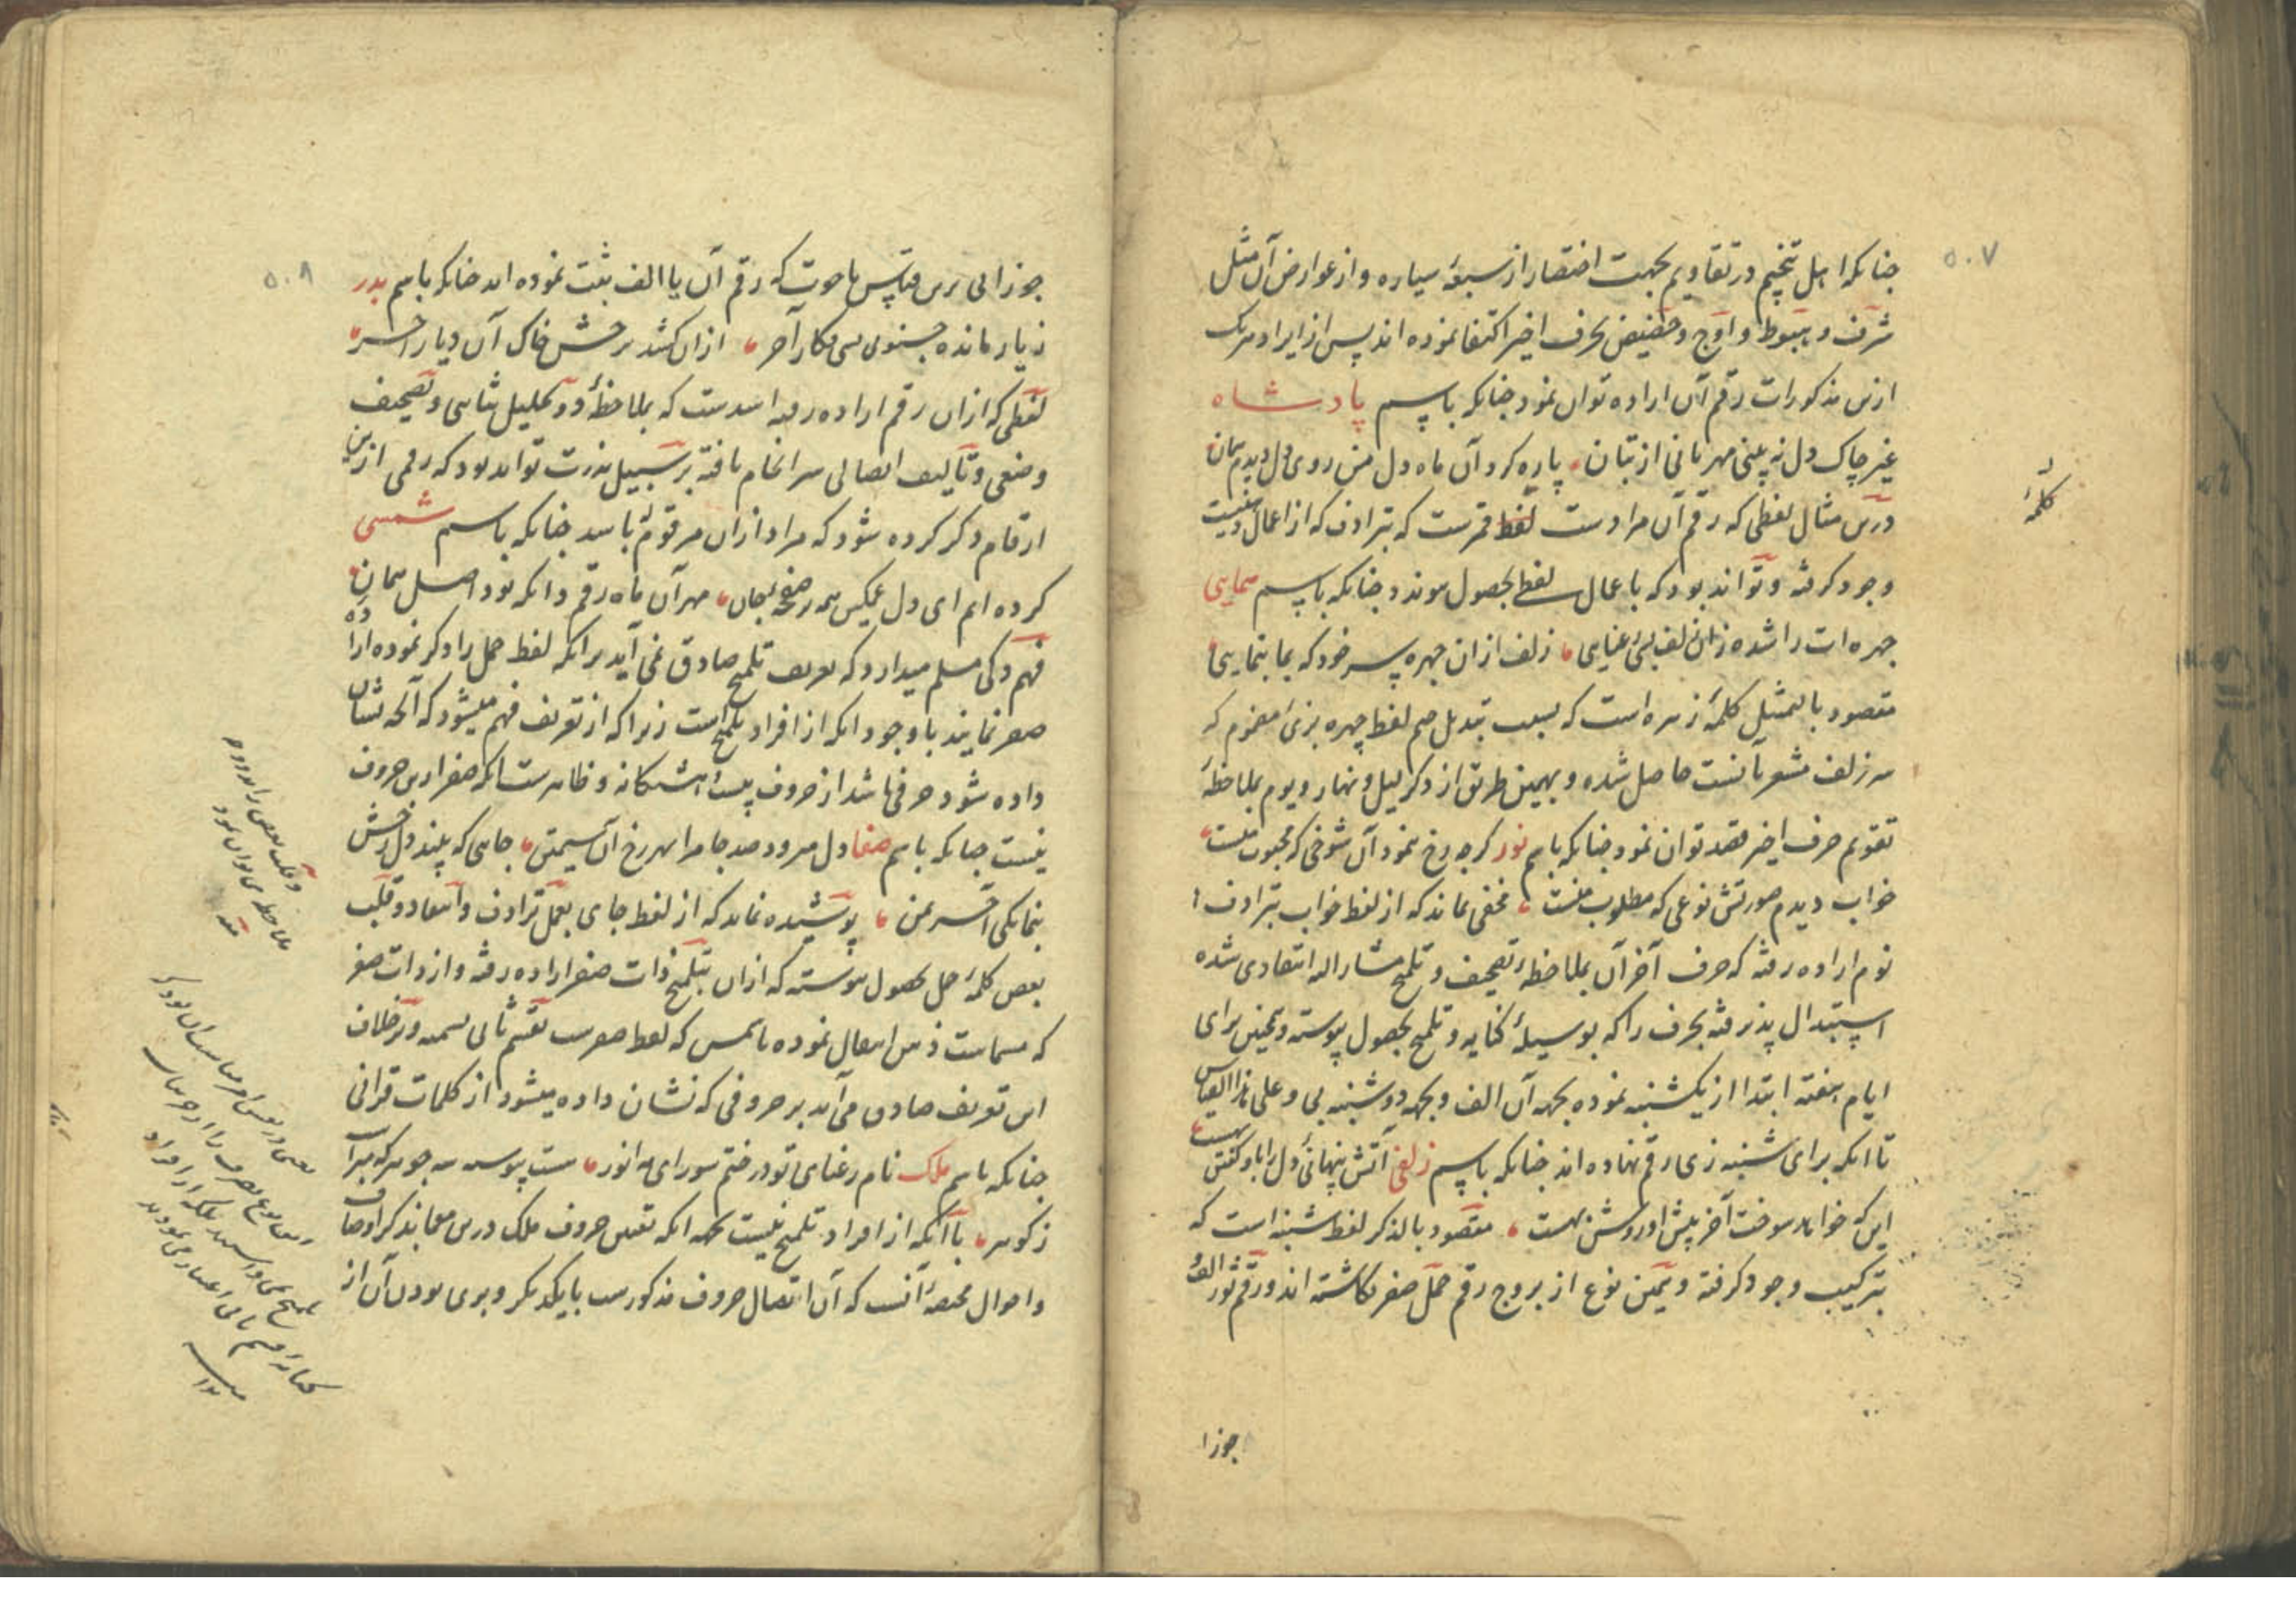 ۵۰۷
چنانکه اهل تنجیم در تقاویم بجهت اختصار از سبعهٔ سیاره و از عوارض آن مثل
شرف و هبوط و اوج و حضیض بحرف اخیر اکتفا نموده اند پس از ایراد هریک
ازین مذکورات رقم آن اراده توان نمود چنانکه باسم پادشاه
غیر چاک دل نه بینی مهربانی از بتان پاره کرد آن ماه دل من روی دل دیدم همان
درین مثال لفظی که رقم آن مرادست لفظ قمرست که بترادف که از اعمال معنیست
وجود گرفته و تواند بود که باعمال لفظی بحصول پیوندد چنانکه باسم همایی
چهره ات را شده زان زلف بسی غنایی زلف از آن چهره پسر خود که بما بنمایی
مقصود بالتمثیل کلمهٔ زهره است که بسبب تبدیل جیم لفظ چهره بزئ مضموم که
سر زلف مشعر بآنست حاصل شده و بهمین طریق از ذکر لیل و نهار و یوم بملاحظهٔ
تقویم حرف اخیر قصد توان نمود چنانکه باسم نور گرچه رخ نمود آن شوخی که محبوب منست
خواب دیدم صورتش نوعی که مطلوب منست مخفی نماند که از لفظ خواب بترادف
نوم اراده رفته که حرف آخر آن بملاحظهٔ تصحیف و تلمیح مشار الیه انتقادی شده
استبدال پذیرفته بحرف را که بوسیلهٔ کنایه و تلمیح بحصول پیوسته و همچنین برای
ایام هفته ابتدا از یکشنبه نموده بجهه آن الف و بجهه دوشنبه بی و علی هذا القیاس
تا آنکه برای شنبه زی رقم نهاده اند چنانکه باسم زلفی آتش پنهانی دل را باو گفتن
این که خواهد سوخت آخر پیش او روشن بهست مقصود بالذکر لفظ شنبه است که
بترکیب وجود گرفته و همین نوع از بروج رقم حمل صفر نگاشته اند و رقم ثور الف
جوزا
کلمهٔ
۵۰۸
جوزا بی برین قیاس تا حوت که رقم آن یا الف ثبت نموده اند چنانکه باسم بدر
زیار مانده جنونی بسی فکار آخر ازان کشد بر چشمش خاک آن دیار آخر
لفظی که ازان رقم اراده رفته اسدست که بملاحظهٔ دو تحلیل ثنایی و تصحیف
وضعی و تألیف اتصالی سرانجام یافته بر سبیل ندرت تواند بود که رقمی ازین
ارقام ذکر کرده شود که مراد ازان مرقوم باشد چنانکه باسم شمسی
کرده ام ای دل بعکس مه در صفحه بجان مهر آن ماه رقم دانکه بود اصل همان
فهم ذکی مسلم میدارد که تعریف تلمیح صادق نمی آید برآنکه لفظ حمل را ذکر نموده اراده
صفر نمایند با وجود آنکه از افراد تلمیح است زیرا که از تعریف فهم میشود که آنچه نشان
داده شود حرفی باشد از حروف بیست و هشتگانه و ظاهرست که صفر ازین حروف
نیست چنانکه باسم صفا دل میرود صد جا مرا بهر رخ آن سیمتن جایی که بیند دل رخش
بنمایکی آخر بمن پوشیده نماند که از لفظ جای بعمل ترادف و انتقاد و قلب
بعض کلمهٔ حمل بحصول پیوسته که ازان بتلمیح ذات صفر اراده رفته و از ذات صفر
که مسماست ذهن انتقال نموده باسمش که لفظ صفرست بقسم ثانی تسمیه و بر خلاف
این تعریف صادق می آید بر حروفی که نشان داده میشود از کلمات قرانی
چنانکه باسم ملک نام رعنای تو در ختم سورای مه انور هست پیوسته سه جوهر که مبراست
ز گوهر باآنکه از افراد تلمیح نیست بجهه آنکه تعیین حروف ملک درین معما بذکر اوصاف
و احوال مختصهٔ آنست که آن اتصال حروف مذکورست با یکدیگر و بری بودن آن از